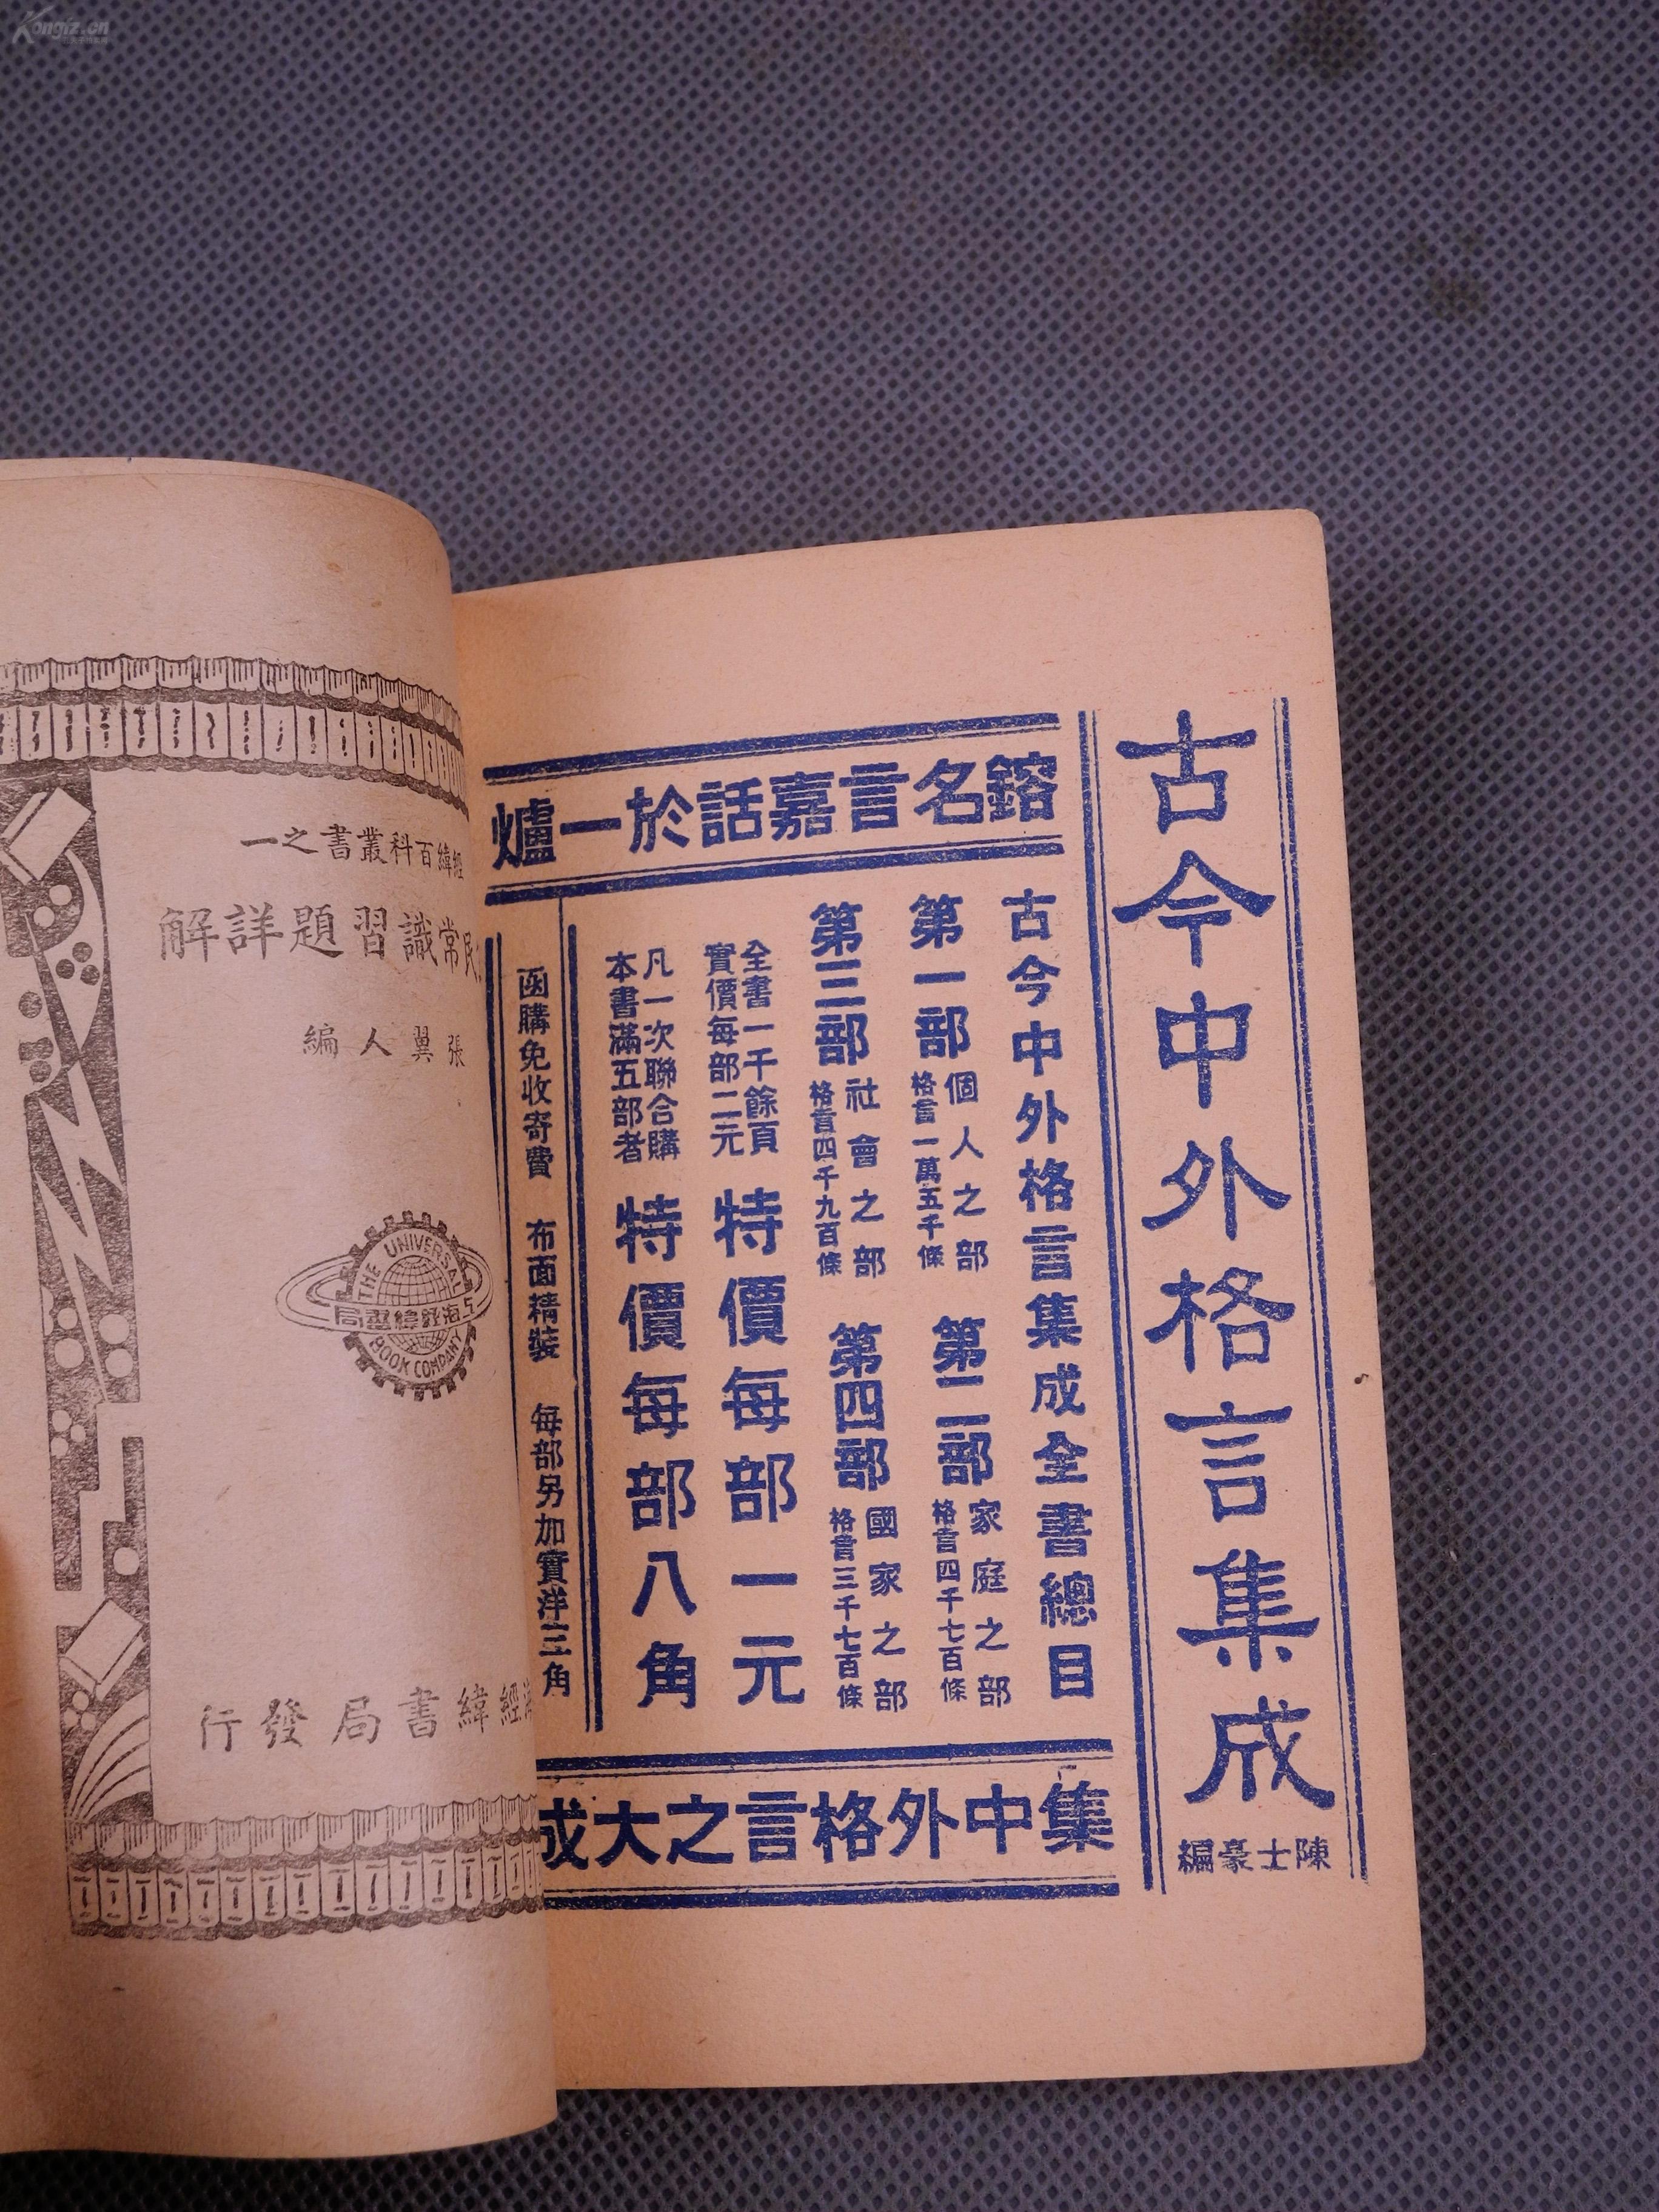 Kongfz.cn
古今中外格言集成
陳士豪編
鎔名言嘉話於一爐
古今中外格言集成全書總目
第一部 個人之部 格言一萬五千條
第二部 家庭之部 格言四千七百條
第三部 社會之部 格言四千九百條
第四部 國家之部 格言三千七百條
全書一千餘頁
實價每部二元
特價每部一元
凡一次聯合購
本書滿五部者
特價每部八角
函購免收寄費 布面精裝 每部另加實洋三角
集中外格言之大成
經緯百科叢書之一
民常識習題詳解
張翼人編
THE UNIVERSAL
上海經緯書局
BOOK COMPANY
海經緯書局發行